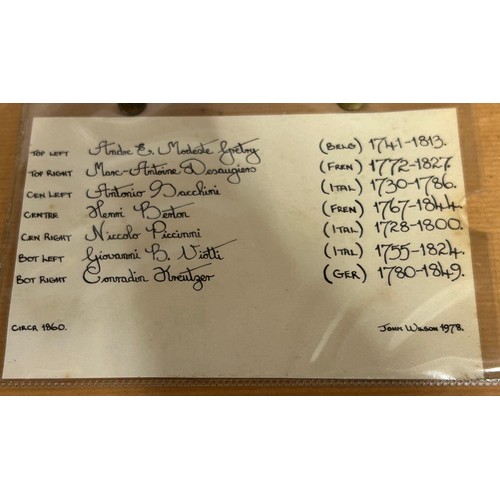 TOP LEFT Andre E. Modeste Gretry (BELG) 1741-1813.
TOP RIGHT Marc-Antoine Desaugiers (FREN) 1772-1827.
CEN LEFT Antonio Sacchini (ITAL) 1730-1786.
CENTRE Henri Berton (FREN) 1767-1844.
CEN RIGHT Niccolo Piccinni (ITAL) 1728-1800.
BOT LEFT Giovanni B. Viotti (ITAL) 1755-1824.
BOT RIGHT Conradin Kreutzer (GER) 1780-1849.
CIRCA 1860. JOHN WILSON 1978.